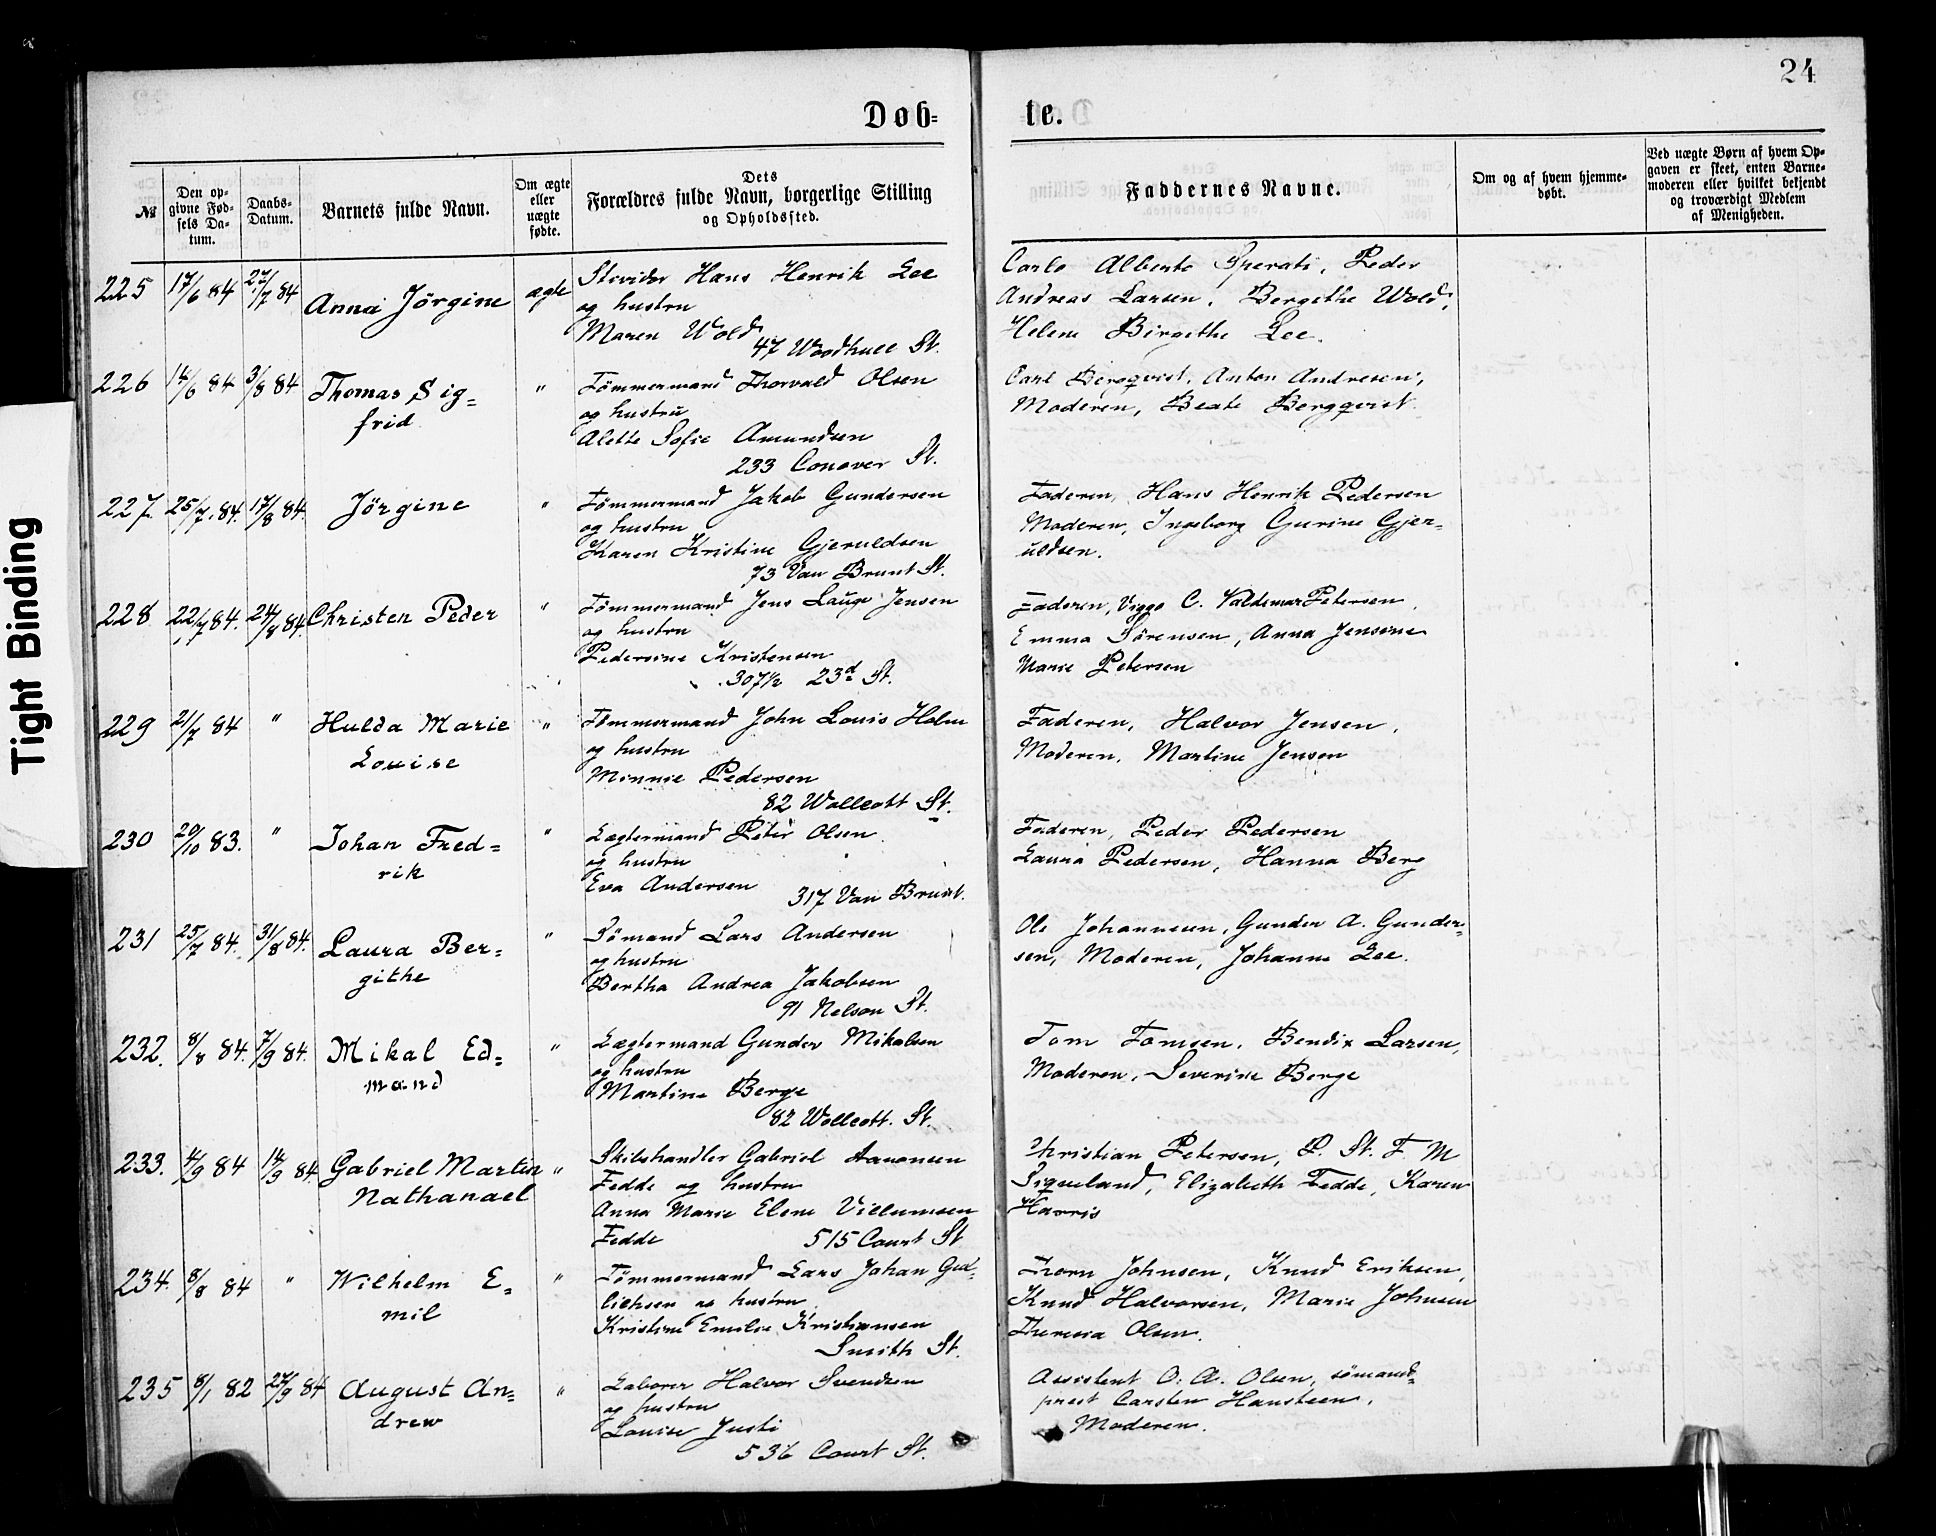 24
Døb=
te.
№
Den op-
givne Fød-
sels Da-
tum.
Daabs-
Datum.
Barnets fulde Navn.
Om ægte
eller
uægte
fødte.
Dets
Forældres fulde Navn, borgerlige Stilling
og Opholdssted.
Faddernes Navne.
Om og af hvem hjemme-
døbt.
Ved uægte Børn af hvem Op-
gaven er skeet, enten Barne-
moderen eller hvilket bekjendt
og troværdigt Medlem
af Menigheden.
225 17/6 84 27/7 84 Anna Jörgine ægte
Stevidor Hans Henrik Lee
og hustru
Maren Wold
47 Woodhull St.
Carlo Alberto Sperati, Peder
Andreas Larsen, Bergithe Wold,
Helene Birgithe Lee.
226 14/6 84 3/8 84 Thomas Sig=
frid "
Tömmermand Thorvald Olsen
og hustru
Alette Sofie Amundsen
233 Conover St.
Carl Bergqvist, Anton Andresen,
Moderen, Beate Bergqvist.
227. 25/7. 84. 17/8 84. Jörgine "
Tömmermand Jakob Gundersen
og hustru
Karen Kristine Gjeruldsen
73 Van Brunt St.
Faderen, Hans Henrik Pedersen
Moderen, Ingeborg Gurine Gjer=
uldsen.
228 22/7 84. 24/8 84. Christen Peder "
Tömmermand Jens Lauge Jensen
og hustru
Pedersine Kristensen
307½ 23d St.
Faderen, Viggo C. Valdemar Petersen,
Emma Sørensen, Anna Jensine
Marie Petersen
229 21/7 84 " Hulda Marie
Louise "
Tömmermand John Louis Holm
og hustru
Minnie Pedersen
82 Wollcott St.
Faderen, Halvor Jensen,
Moderen, Martine Jensen
230 20/10 83. " Johan Fred=
rik "
Lægtermand Peter Olsen
og hustru
Eva Andersen
317 Van Brunt.
Faderen, Peder Pedersen
Laura Pedersen, Hanna Berg
231 25/7 84. 31/8 84. Laura Ber=
githe "
Sömand Lars Andersen
og hustru
Bertha Andrea Jakobsen
91 Nelson St.
Ole Johannesen, Gunder A. Gunder=
sen, Moderen, Johanne Lee.
232. 8/8 84. 7/9 84. Mikal Ed=
mand "
Lægtermand Gunder Mikalsen
og hustru
Martine Berge
82 Wollcott. St.
Tom Tomsen, Bendix Larsen,
Moderen, Severine Berge
233. 4/9 84 14/9 84. Gabriel Martin
Nathanael "
Skibshandler Gabriel Aanonsen
Fedde og hustru
Anna Marie Elene Villumsen
Fedde 515 Court St
Christian Petersen, P. St. F. M
Sigveland, Elizabeth Fedde, Karen
Harris
234. 8/8 84 " Wilhelm E=
mil "
Tömmermand Lars Johan Gud=
og hustru
Kristine Emilie Kristiansen
Smith St.
Thorn Johnsen, Knud Eriksen,
Knud Halvorsen, Marie Johnsen
Theresia Olsen.
235 8/1 82 27/9 84 August An=
drew "
Laborer Halvor Svendsen
og hustru
Louise Justi
536 Court St.
Assistent O. A. Olsen, sömand=
prest Carsten Hansteen,
Moderen.
Tight Binding